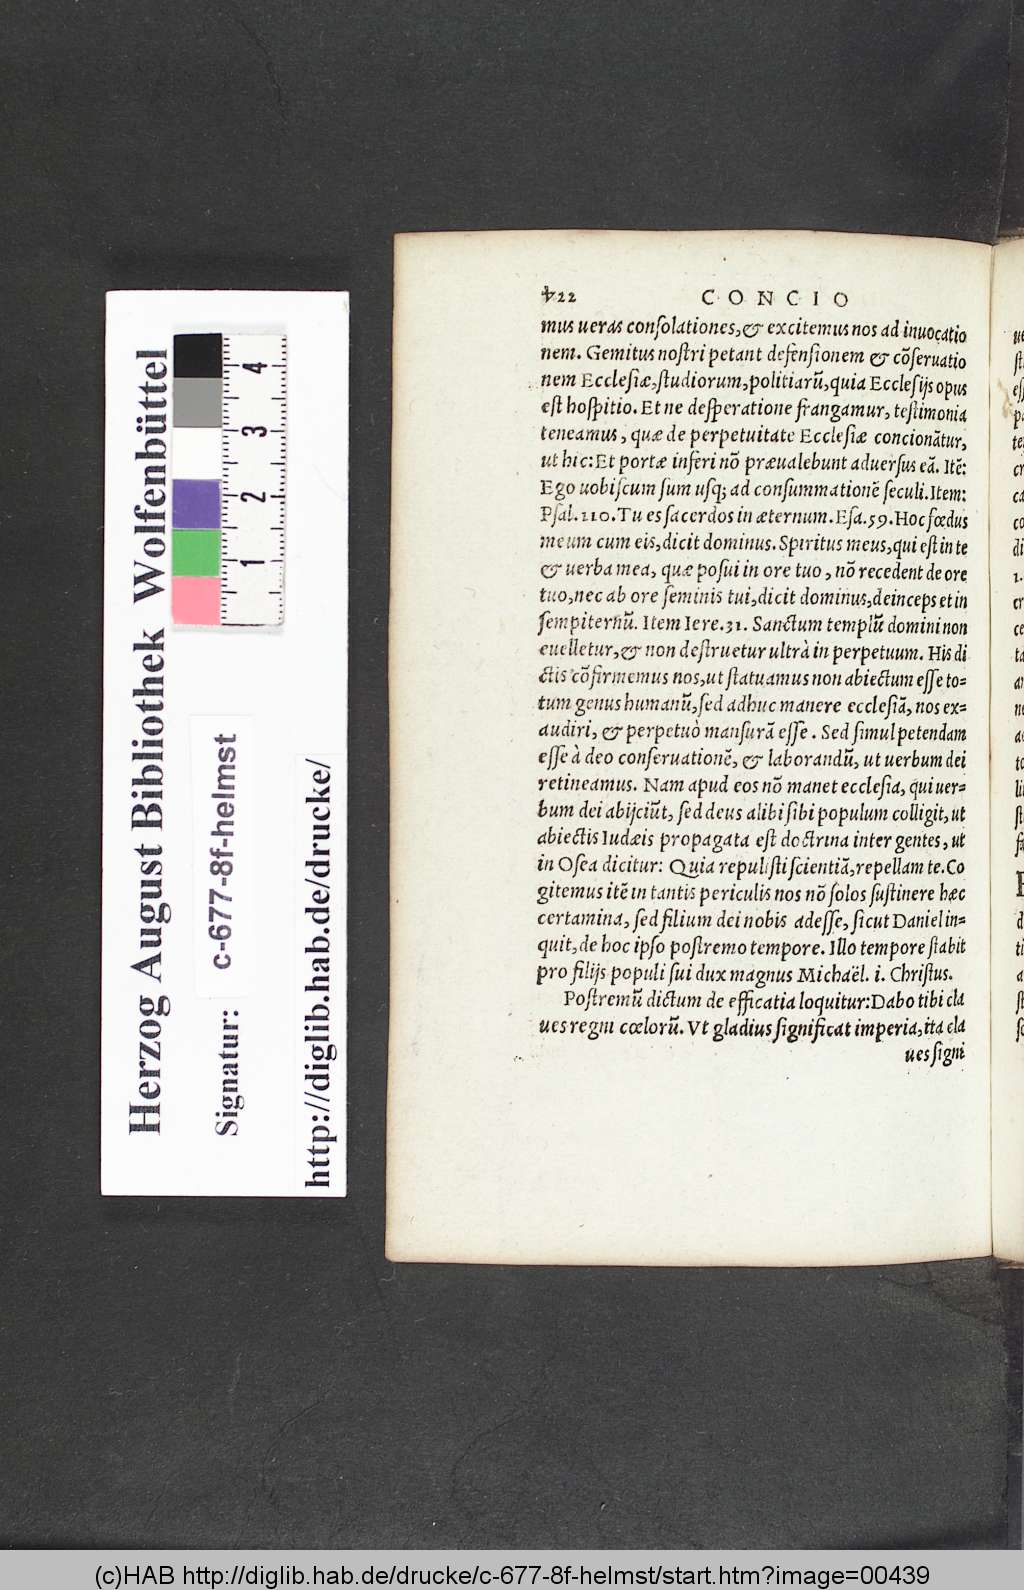 422 CONCIO
mus ueras consolationes, & excitemus nos ad inuocatio
nem. Gemitus nostri petant defensionem & cōseruatio
nem Ecclesiæ, studiorum, politiarū, quia Ecclesijs opus
est hospitio. Et ne desperatione frangamur, testimonia
teneamus, quæ de perpetuitate Ecclesiæ concionātur,
ut hic: Et portæ inferi nō præualebunt aduersus eā. Itē:
Ego uobiscum sum usq; ad consummationē seculi. Item:
Psal. 110. Tu es sacerdos in æternum. Esa. 59. Hoc fœdus
meum cum eis, dicit dominus. Spiritus meus, qui est in te
& uerba mea, quæ posui in ore tuo, nō recedent de ore
tuo, nec ab ore seminis tui, dicit dominus, deinceps et in
sempiternū. Item Iere. 31. Sanctum templū domini non
euelletur, & non destruetur ultrà in perpetuum. His di
ctis cōfirmemus nos, ut statuamus non abiectum esse to=
tum genus humanū, sed adhuc manere ecclesiā, nos ex=
audiri, & perpetuò mansurā esse. Sed simul petendam
esse à deo conseruationē, & laborandū, ut uerbum dei
retineamus. Nam apud eos nō manet ecclesia, qui uer=
bum dei abijciūt, sed deus alibi sibi populum colligit, ut
abiectis Iudæis propagata est doctrina inter gentes, ut
in Osea dicitur: Quia repulisti scientiā, repellam te. Co
gitemus itē in tantis periculis nos nō solos sustinere hæc
certamina, sed filium dei nobis adesse, sicut Daniel in=
quit, de hoc ipso postremo tempore. Illo tempore stabit
pro filijs populi sui dux magnus Michaël. i. Christus.
Postremū dictum de efficatia loquitur: Dabo tibi cla
ues regni cœlorū. Vt gladius significat imperia, ita cla
ues signi
Herzog August Bibliothek Wolfenbüttel
Signatur: c-677-8f-helmst
http://diglib.hab.de/drucke/
1 2 3 4
(c)HAB http://diglib.hab.de/drucke/c-677-8f-helmst/start.htm?image=00439